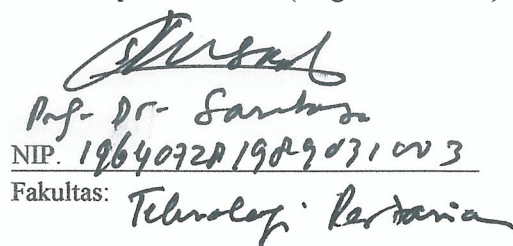 Prof. Dr. Santoso
NIP. 196407281989031003
Fakultas: Teknologi Pertanian